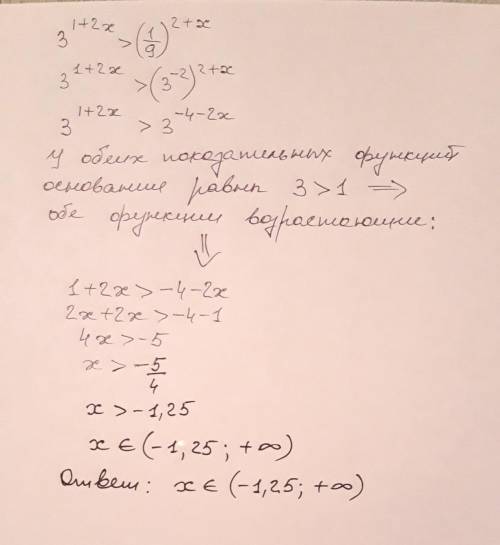 3^{1+2x} > (1/9)^{2+x}
3^{1+2x} > (3^{-2})^{2+x}
3^{1+2x} > 3^{-4-2x}
У обеих показательных функций
основания равны 3>1 ⟹
обе функции возрастающие:
⇓
1+2x > -4-2x
2x+2x > -4-1
4x > -5
x > -5/4
x > -1,25
x ∈ (-1,25; +∞)
Ответ: x ∈ (-1,25; +∞)